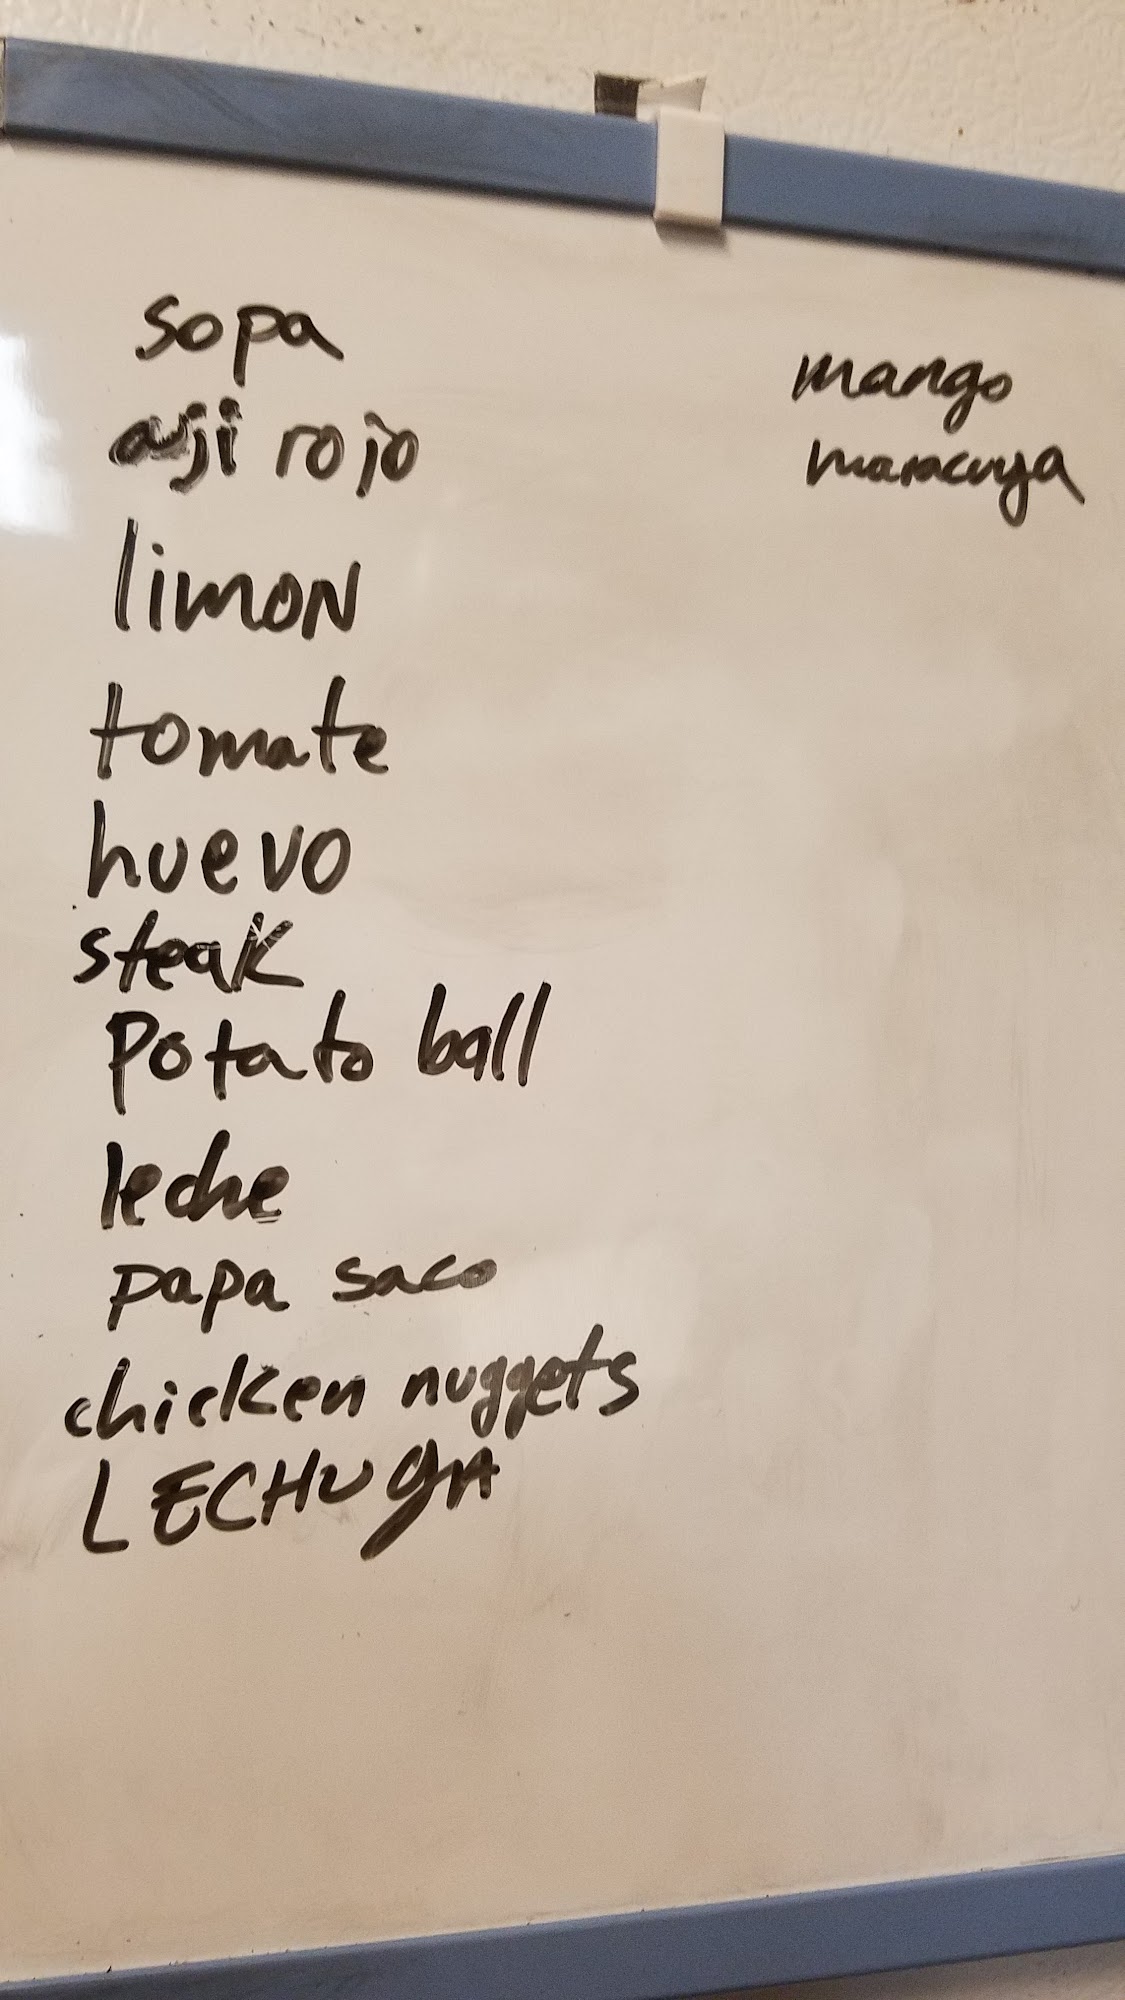 sopa
aji rojo
limon
tomate
huevo
steak
potato ball
leche
papa saco
chicken nuggets
LECHUgA
mango
maracuya